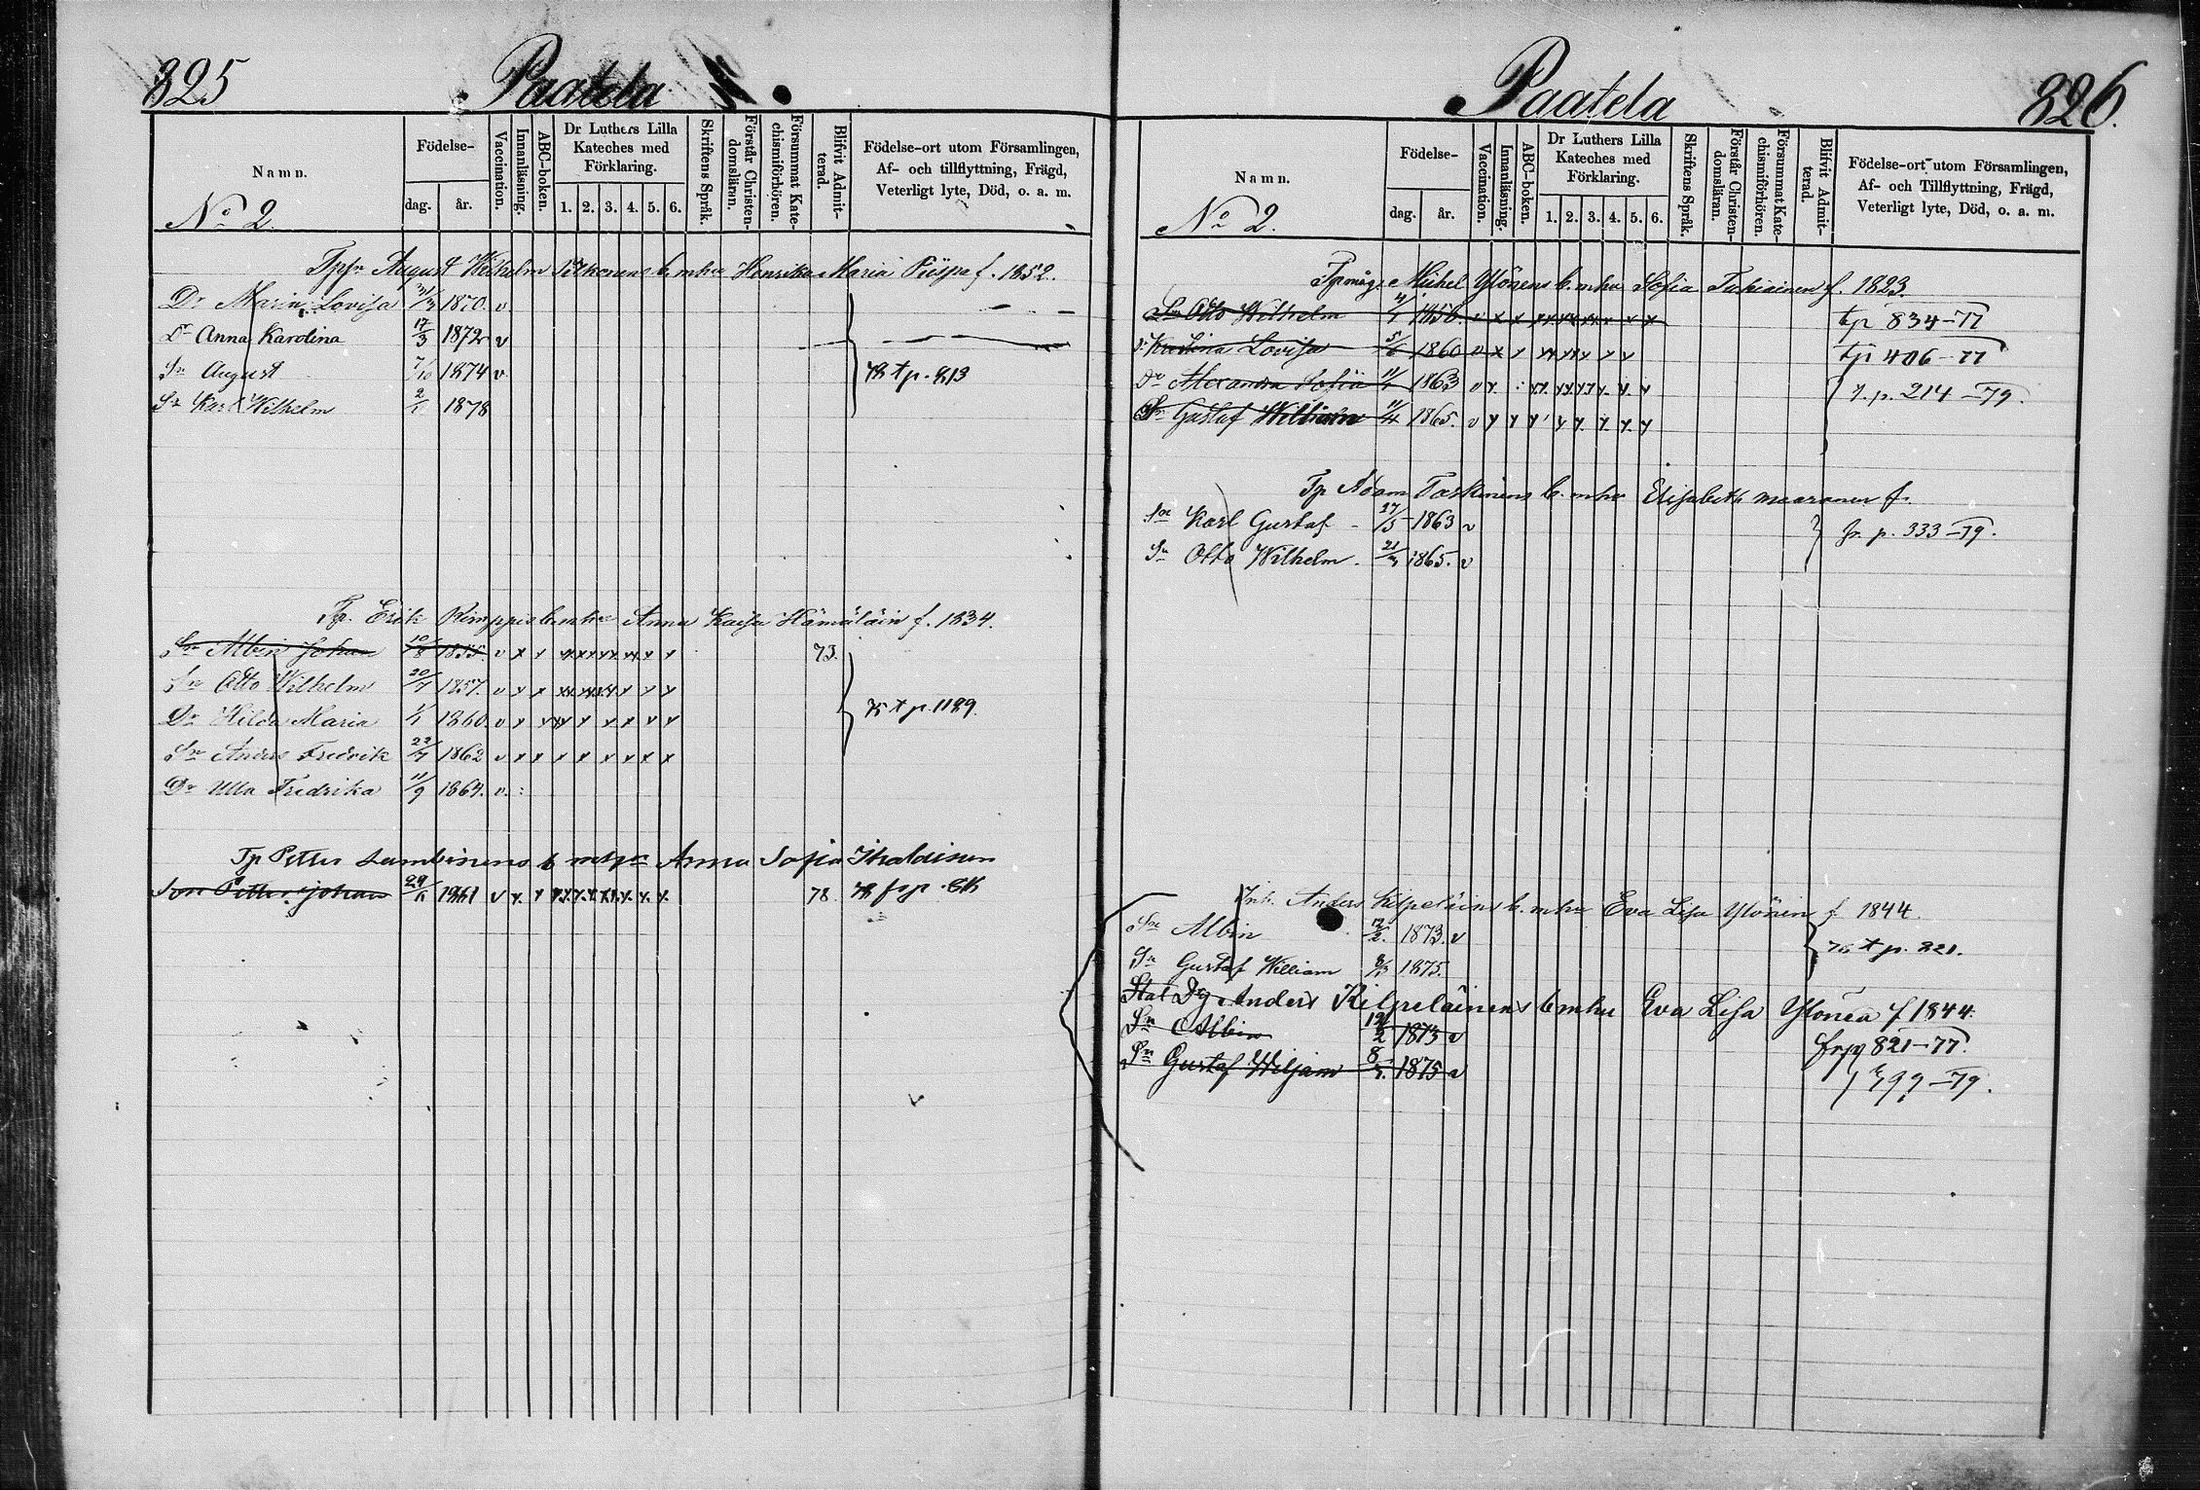 825
Paatela
Namn.
Födelse-
dag.
år.
Vaccination.
Innanläsning.
ABC-boken.
Dr Luthers Lilla
Kateches med
Förklaring.
1. 2. 3. 4. 5. 6.
Skriftens Språk.
Förstår Christen-
domsläran.
Försummat Kate-
chismiförhören.
Blifvit Admit-
terad.
Födelse-ort utom Församlingen,
Af- och tillflyttning, Frägd,
Veterligt lyte, Död, o. a. m.
No 2.
August Wilhelm b. mhu Henrika Maria f. 1852.
Dr Maria Lovisa 1870. v
Dr Anna Karolina 17/3 1872 v
Sn August 7/10 1874 v
Sn Karl Wilhelm 1878
78 t p. 813
Tp. Erik b. mhu Anna Kaisa Hämäläin f. 1834.
Sn Albin Johan 10/8 1855. v x x x x x x x x 73.
Sn Otto Wilhelm 1857. v x x x x x x x x
Dr Hilda Maria 1860. v x x x x x x x x
75 t p. 1129.
Sn Anders Fredrik 1862 v x x x x x x x x
Dr Ulla Fredrika 11/9 1864. v.
Tp Petter b mhu Anna Sofia
Son Petter Johan 1861 v x x x x x x x x 78.
826.
Paatela
Namn.
Födelse-
dag.
år.
Vaccination.
Innanläsning.
ABC-boken.
Dr Luthers Lilla
Kateches med
Förklaring.
1. 2. 3. 4. 5. 6.
Skriftens Språk.
Förstår Christen-
domsläran.
Försummat Kate-
chismiförhören.
Blifvit Admit-
terad.
Födelse-ort utom Församlingen,
Af- och Tillflyttning, Frägd,
Veterligt lyte, Död, o. a. m.
No 2.
Michel Ylönens b. mhu Sofia f. 1823.
Sn Otto Wilhelm 1856. v x x x x x x x x tp 834-77
Dr Kristina Lovisa 1860 v x x x x x x x tp 406-77
Dr Alexandra Sofia 1863 v x x x x x x x t. p. 214-79.
Sn Gustaf William 11/4 1865. v x x x x x x x x
Tp Adam Taskinens b. mhu Elisabeth f.
Sn Karl Gustaf 1863 v
fr. p. 333-79.
Sn Otto Wilhelm 1865. v
Inh. Anders Kilpeläins b. mhu Eva Lisa Ylönen f. 1844.
Sn Albin 12/2 1873. v
76 t p. 821.
Sn Gustaf William 1875.
Stat Dg Anders Kilpeläinens b mhu Eva Lisa Ylönen f 1844.
Sn Albin 12/2 1873 v
frpg 821-77.
Sn Gustaf Wiljam 1875 v
799-79.